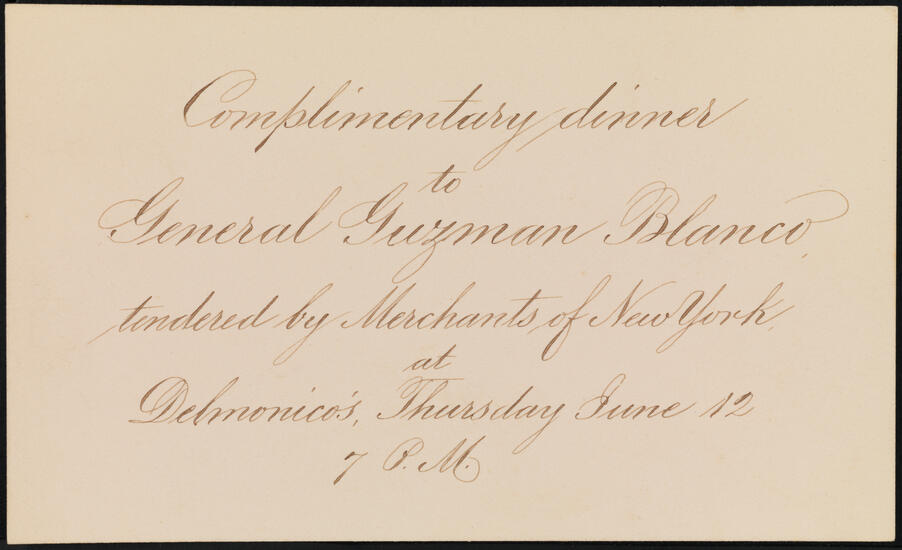 Complimentary dinner
to
General Guzman Blanco,
tendered by Merchants of New York,
at
Delmonico's, Thursday June 12
7 P. M.